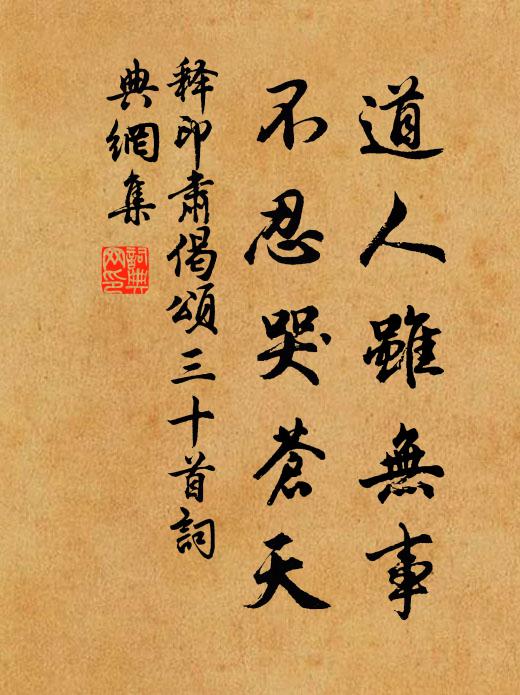 道人雖無事
不忍哭蒼天
釋印肅偈頌三十首詞
典網集
詞典網印